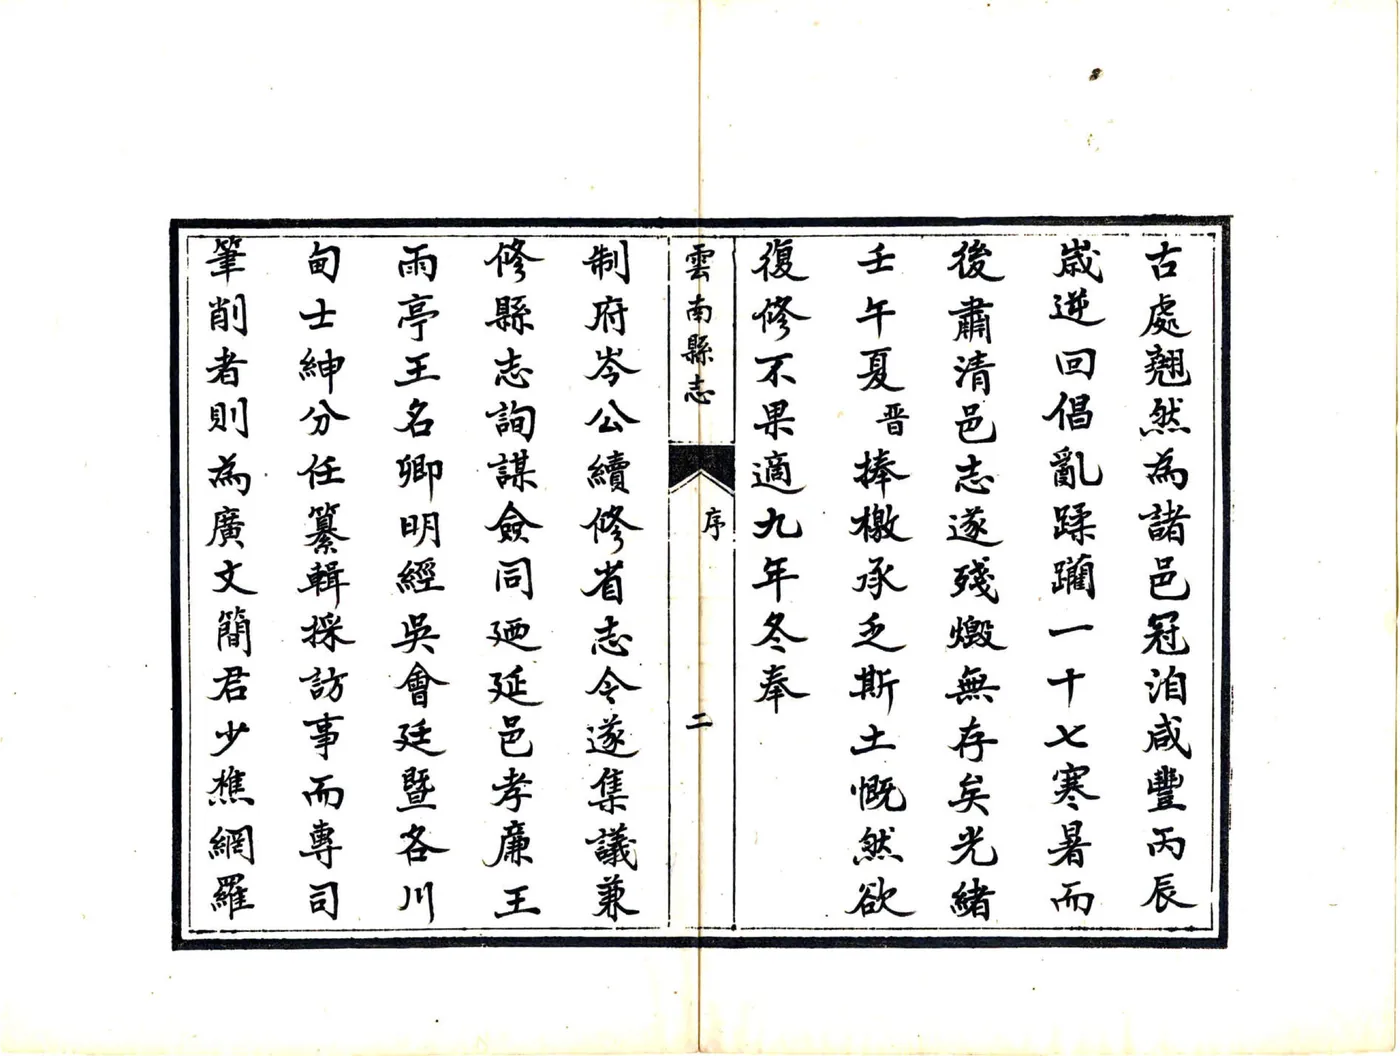 古處翹然為諸邑冠洎咸豐丙辰
歲逆回倡亂蹂躪一十七寒暑而
後肅清邑志遂殘燬無存矣光緒
壬午夏晋捧檄承乏斯土慨然欲
復修不果適九年冬奉
雲南縣志
序
二
制府岑公續修省志令遂集議兼
修縣志詢謀僉同廼延邑孝廉王
雨亭王名卿明經吳會廷暨各川
甸士紳分任纂輯採訪事而專司
筆削者則為廣文簡君少樵網羅